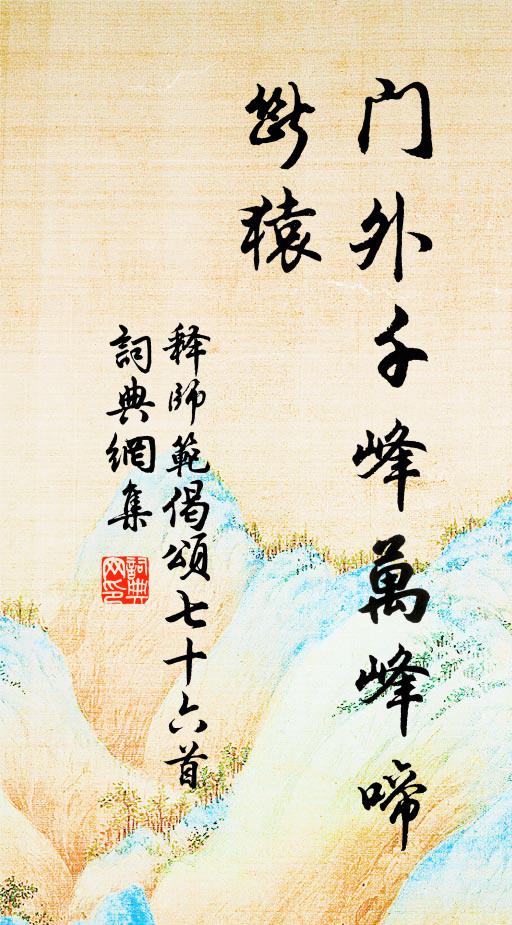 门外千峰萬峰啼
斷猿
释師範偈頌七十六首
詞典網集
詞典
网印